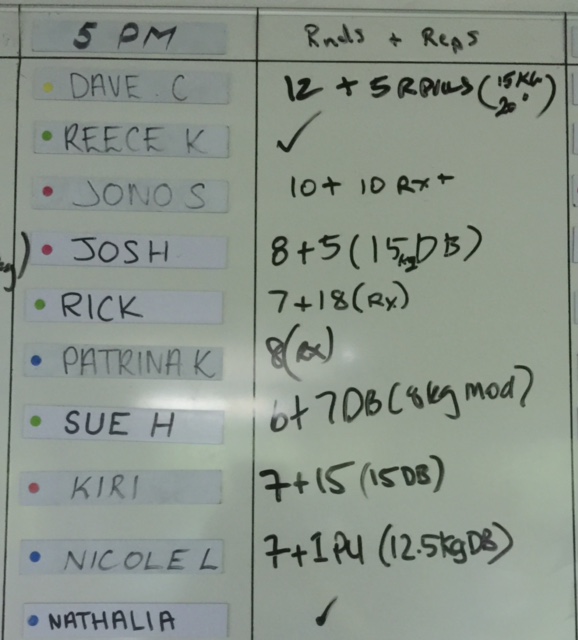 5 PM Rnds + Reps
DAVE C 12 + 5 (15 KG 20")
REECE K ✓
JONO S 10 + 10 Rx +
JOSH 8 + 5 (15kg DB)
RICK 7 + 18 (Rx)
PATRINA K 8 (Rx)
SUE H 6 + 7 DB (8kg mod)
KIRI 7 + 15 (15 DB)
NICOLE L 7 + 1 PU (12.5kg DB)
NATHALIA ✓